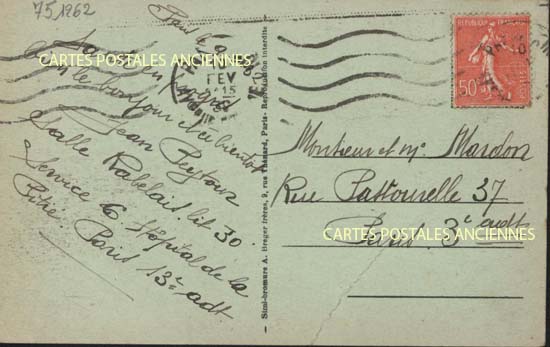 751262
CARTES POSTALES ANCIENNES
FEV
le bonjour et a bientot
Jean
Salle Rabelais lit 30
Service 6 Hôpital de la
Pitié. Paris 13e adt
Simi-bromure A. Breger frères, 9, rue Thénard, Paris- Reproduction interdite
REPUBLIQUE
50c
Monsieur et Me Mardon
Rue Pastourelle 37
Paris 3e adt
CARTES POSTALES ANCIENNES